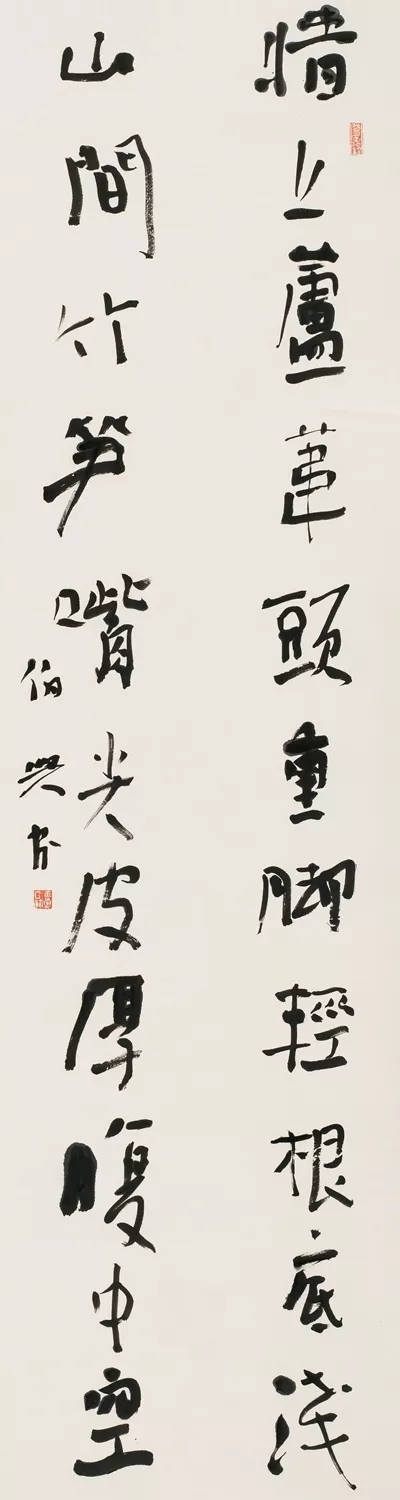 牆上蘆葦頭重脚輕根底浅
山間竹笋嘴尖皮厚腹中空
伯兴书